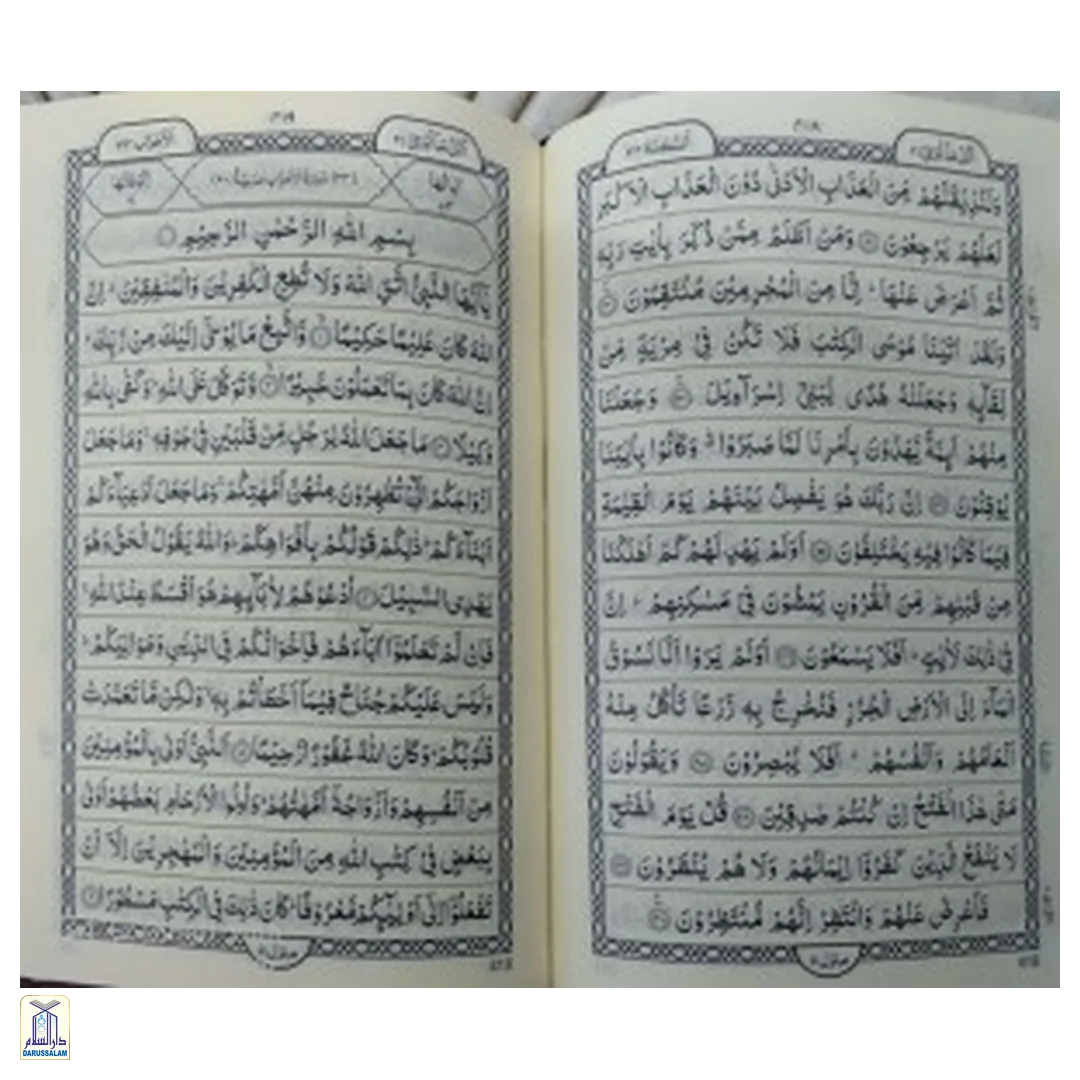 ٤١٨
السجدة ٣٢
اتل مآ اوحی ٢١
وَلَنُذِيْقَنَّهُمْ مِّنَ الْعَذَابِ الْاَدْنٰى دُوْنَ الْعَذَابِ الْاَكْبَرِ
لَعَلَّهُمْ يَرْجِعُوْنَ ۝ وَمَنْ اَظْلَمُ مِمَّنْ ذُكِّرَ بِاٰيٰتِ رَبِّهٖ
ثُمَّ اَعْرَضَ عَنْهَا ؕ اِنَّا مِنَ الْمُجْرِمِيْنَ مُنْتَقِمُوْنَ ۝
وَلَقَدْ اٰتَيْنَا مُوْسَى الْكِتٰبَ فَلَا تَكُنْ فِيْ مِرْيَةٍ مِّنْ
لِّقَآئِهٖ وَجَعَلْنٰهُ هُدًى لِّبَنِيْٓ اِسْرَآءِيْلَ ۝ وَجَعَلْنَا
مِنْهُمْ اَئِمَّةً يَّهْدُوْنَ بِاَمْرِنَا لَمَّا صَبَرُوْا ۛ وَكَانُوْا بِاٰيٰتِنَا
يُوْقِنُوْنَ ۝ اِنَّ رَبَّكَ هُوَ يَفْصِلُ بَيْنَهُمْ يَوْمَ الْقِيٰمَةِ
فِيْمَا كَانُوْا فِيْهِ يَخْتَلِفُوْنَ ۝ اَوَلَمْ يَهْدِ لَهُمْ كَمْ اَهْلَكْنَا
مِنْ قَبْلِهِمْ مِّنَ الْقُرُوْنِ يَمْشُوْنَ فِيْ مَسٰكِنِهِمْ ؕ اِنَّ
فِيْ ذٰلِكَ لَاٰيٰتٍ ؕ اَفَلَا يَسْمَعُوْنَ ۝ اَوَلَمْ يَرَوْا اَنَّا نَسُوْقُ
الْمَآءَ اِلَى الْاَرْضِ الْجُرُزِ فَنُخْرِجُ بِهٖ زَرْعًا تَاْكُلُ مِنْهُ
اَنْعَامُهُمْ وَاَنْفُسُهُمْ ؕ اَفَلَا يُبْصِرُوْنَ ۝ وَيَقُوْلُوْنَ
مَتٰى هٰذَا الْفَتْحُ اِنْ كُنْتُمْ صٰدِقِيْنَ ۝ قُلْ يَوْمَ الْفَتْحِ
لَا يَنْفَعُ الَّذِيْنَ كَفَرُوْٓا اِيْمَانُهُمْ وَلَا هُمْ يُنْظَرُوْنَ ۝
فَاَعْرِضْ عَنْهُمْ وَانْتَظِرْ اِنَّهُمْ مُّنْتَظِرُوْنَ ۝
٤١٩
الاحزاب ٣٣
بِسْمِ اللهِ الرَّحْمٰنِ الرَّحِيْمِ
يٰٓاَيُّهَا النَّبِيُّ اتَّقِ اللهَ وَلَا تُطِعِ الْكٰفِرِيْنَ وَالْمُنٰفِقِيْنَ ؕ اِنَّ
اللهَ كَانَ عَلِيْمًا حَكِيْمًا ۝ وَّاتَّبِعْ مَا يُوْحٰٓى اِلَيْكَ مِنْ رَّبِّكَ ؕ
اِنَّ اللهَ كَانَ بِمَا تَعْمَلُوْنَ خَبِيْرًا ۝ وَّتَوَكَّلْ عَلَى اللهِ ؕ وَكَفٰى بِاللهِ
وَكِيْلًا ۝ مَا جَعَلَ اللهُ لِرَجُلٍ مِّنْ قَلْبَيْنِ فِيْ جَوْفِهٖ ۚ وَمَا جَعَلَ
اَزْوَاجَكُمُ الّٰٓـِٔيْ تُظٰهِرُوْنَ مِنْهُنَّ اُمَّهٰتِكُمْ ۚ وَمَا جَعَلَ اَدْعِيَآءَكُمْ
اَبْنَآءَكُمْ ؕ ذٰلِكُمْ قَوْلُكُمْ بِاَفْوَاهِكُمْ ؕ وَاللهُ يَقُوْلُ الْحَقَّ وَهُوَ
يَهْدِى السَّبِيْلَ ۝ اُدْعُوْهُمْ لِاٰبَآئِهِمْ هُوَ اَقْسَطُ عِنْدَ اللهِ ۚ
فَاِنْ لَّمْ تَعْلَمُوْٓا اٰبَآءَهُمْ فَاِخْوَانُكُمْ فِى الدِّيْنِ وَمَوَالِيْكُمْ ؕ
وَلَيْسَ عَلَيْكُمْ جُنَاحٌ فِيْمَآ اَخْطَاْتُمْ بِهٖ ۙ وَلٰكِنْ مَّا تَعَمَّدَتْ
قُلُوْبُكُمْ ؕ وَكَانَ اللهُ غَفُوْرًا رَّحِيْمًا ۝ اَلنَّبِيُّ اَوْلٰى بِالْمُؤْمِنِيْنَ
مِنْ اَنْفُسِهِمْ وَاَزْوَاجُهٗٓ اُمَّهٰتُهُمْ ؕ وَاُولُوا الْاَرْحَامِ بَعْضُهُمْ اَوْلٰى
بِبَعْضٍ فِيْ كِتٰبِ اللهِ مِنَ الْمُؤْمِنِيْنَ وَالْمُهٰجِرِيْنَ اِلَّآ اَنْ
تَفْعَلُوْٓا اِلٰٓى اَوْلِيٰٓئِكُمْ مَّعْرُوْفًا ؕ كَانَ ذٰلِكَ فِى الْكِتٰبِ مَسْطُوْرًا ۝
دارالسلام
DARUSSALAM